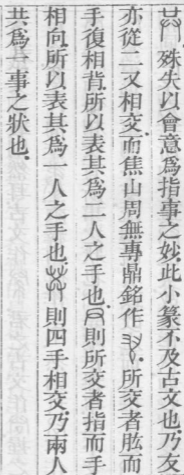 殊失以會意爲指事之妙此小篆不及古文也乃友
亦從二又相交而焦山周無專鼎銘作 所交者肱而
手復相背所以表其爲二人之手也 則所交者指而手
相向所以表其爲一人之手也 則四手相交乃兩人
共爲一事之狀也